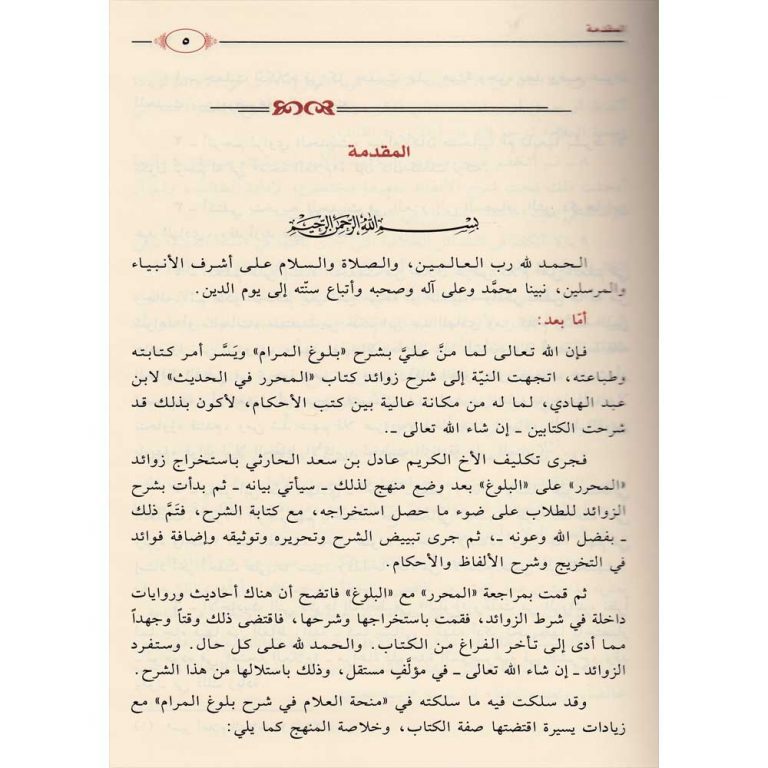 المقدمة
٥
المقدمة
بسم الله الرحمن الرحيم
الحمد لله رب العالمين، والصلاة والسلام على أشرف الأنبياء
والمرسلين، نبينا محمَّد وعلى آله وصحبه وأتباع سنّته إلى يوم الدين.
أمّا بعد:
فإن الله تعالى لما منَّ عليَّ بشرح «بلوغ المرام» ويَسَّر أمر كتابته
وطباعته، اتجهت النيّة إلى شرح زوائد كتاب «المحرر في الحديث» لابن
عبد الهادي، لما له من مكانة عالية بين كتب الأحكام، لأكون بذلك قد
شرحت الكتابين ـ إن شاء الله تعالى ـ.
فجرى تكليف الأخ الكريم عادل بن سعد الحارثي باستخراج زوائد
«المحرر» على «البلوغ» بعد وضع منهج لذلك ـ سيأتي بيانه ـ ثم بدأت بشرح
الزوائد للطلاب على ضوء ما حصل استخراجه، مع كتابة الشرح، فتَمَّ ذلك
ـ بفضل الله وعونه ـ، ثم جرى تبييض الشرح وتحريره وتوثيقه وإضافة فوائد
في التخريج وشرح الألفاظ والأحكام.
ثم قمت بمراجعة «المحرر» مع «البلوغ» فاتضح أن هناك أحاديث وروايات
داخلة في شرط الزوائد، فقمت باستخراجها وشرحها، فاقتضى ذلك وقتاً وجهداً
مما أدى إلى تأخر الفراغ من الكتاب. والحمد لله على كل حال. وستفرد
الزوائد ـ إن شاء الله تعالى ـ في مؤلَّفٍ مستقل، وذلك باستلالها من هذا الشرح.
وقد سلكت فيه ما سلكته في «منحة العلام في شرح بلوغ المرام» مع
زيادات يسيرة اقتضتها صفة الكتاب، وخلاصة المنهج كما يلي: